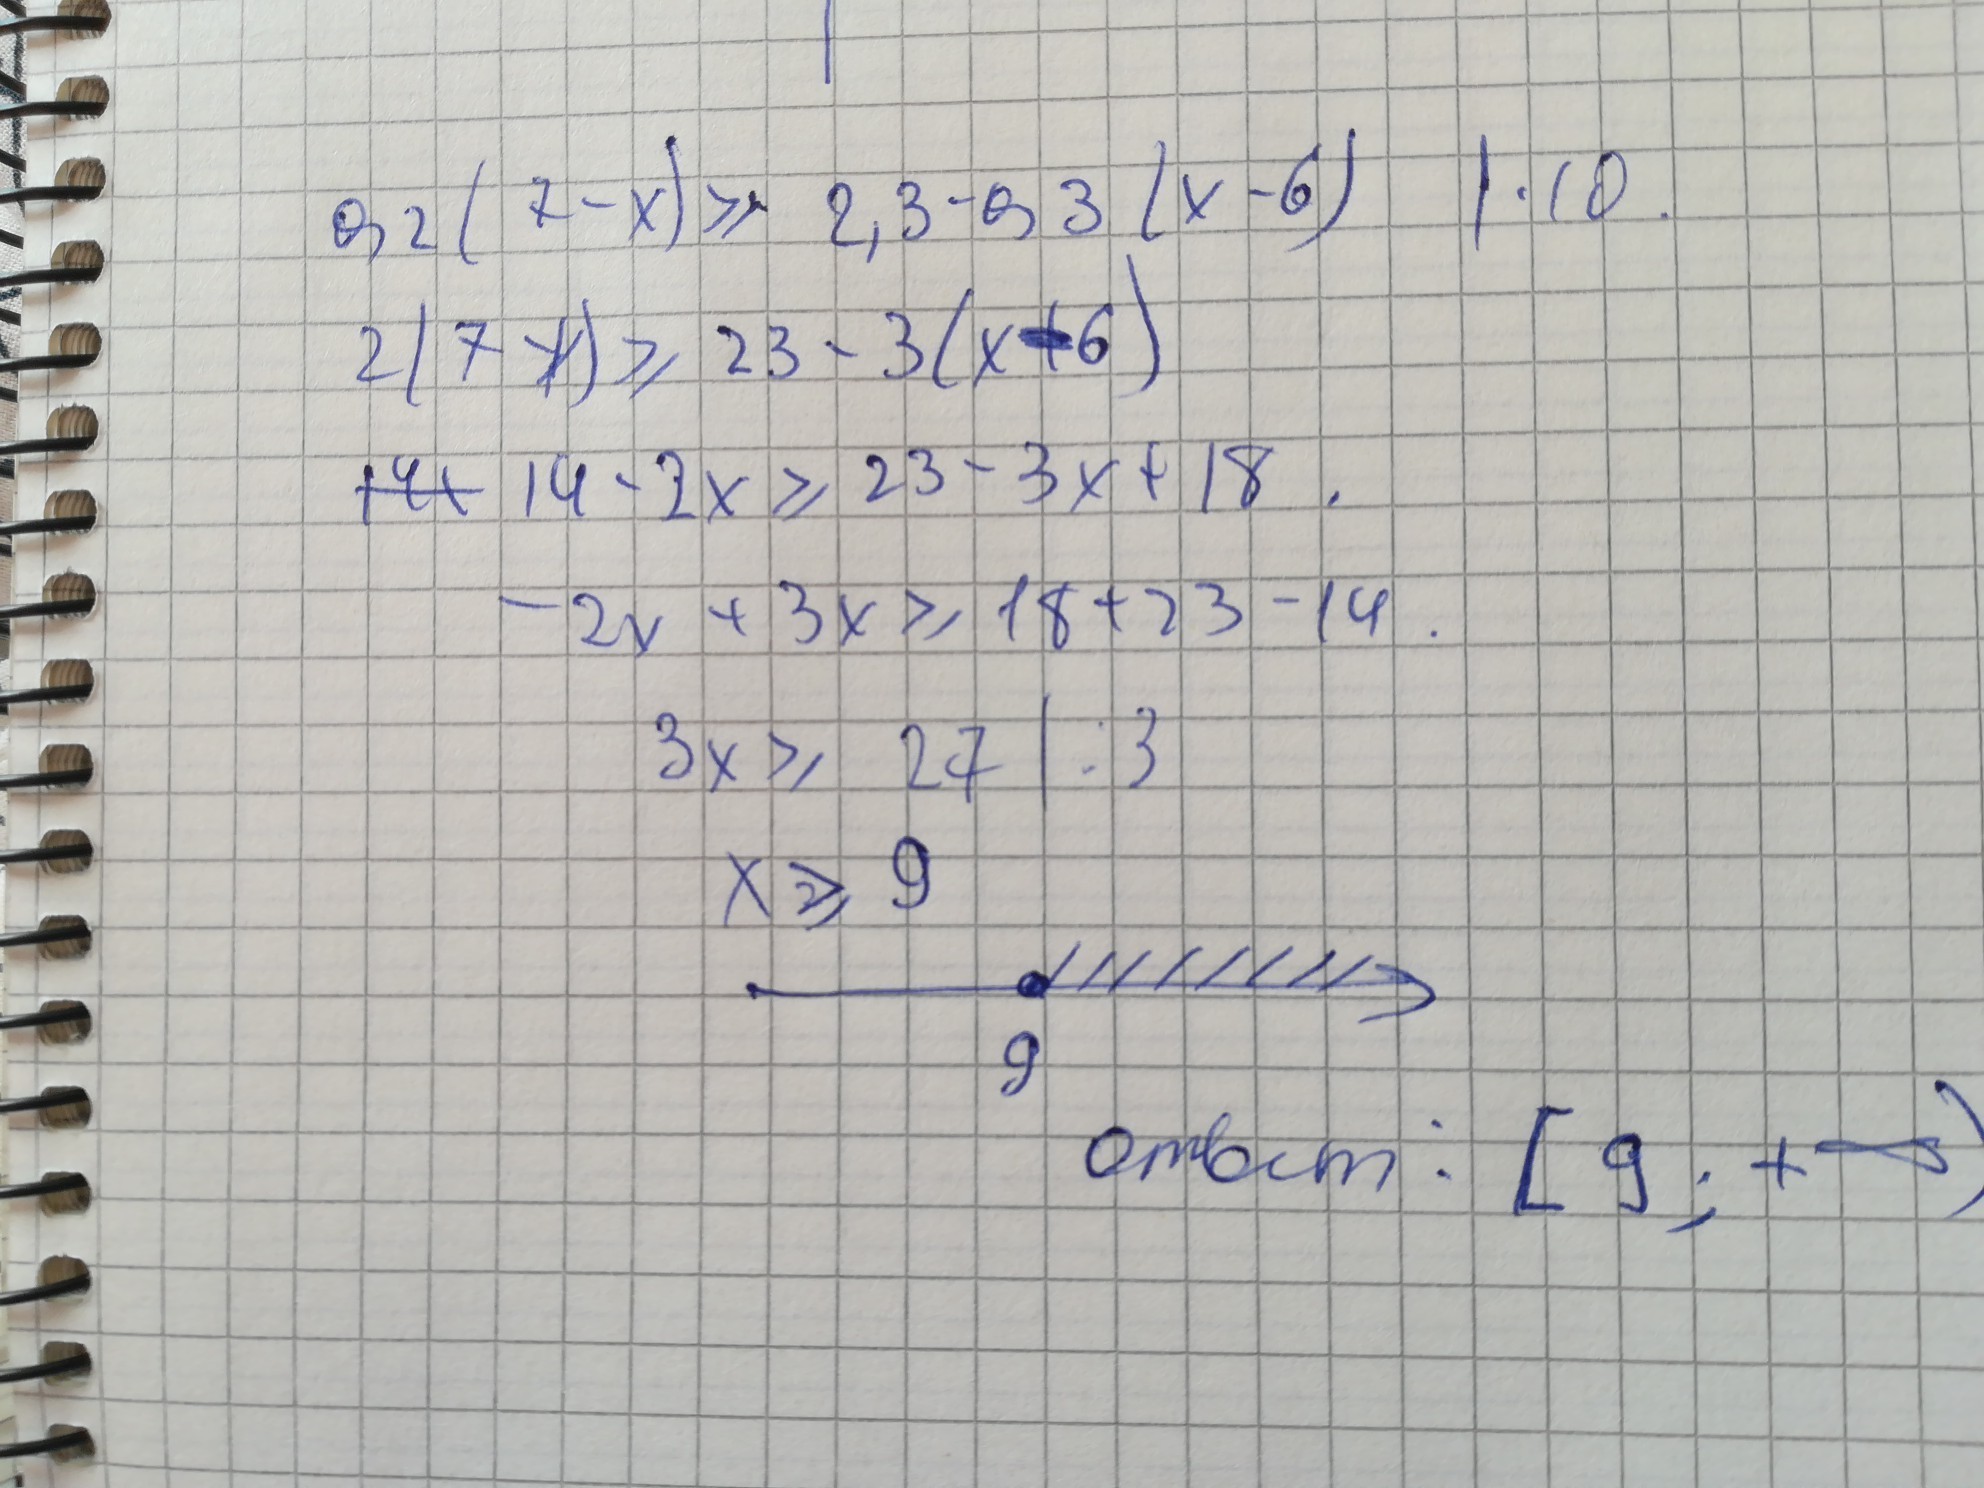 0,2(7-x)≥ 2,3-0,3(x-6) |·10.
2(7-x)≥23-3(x-6)
14-2x≥23-3x+18.
-2x+3x≥18+23-14.
3x≥27|:3
x≥9
9
ответ: [9;+∞)